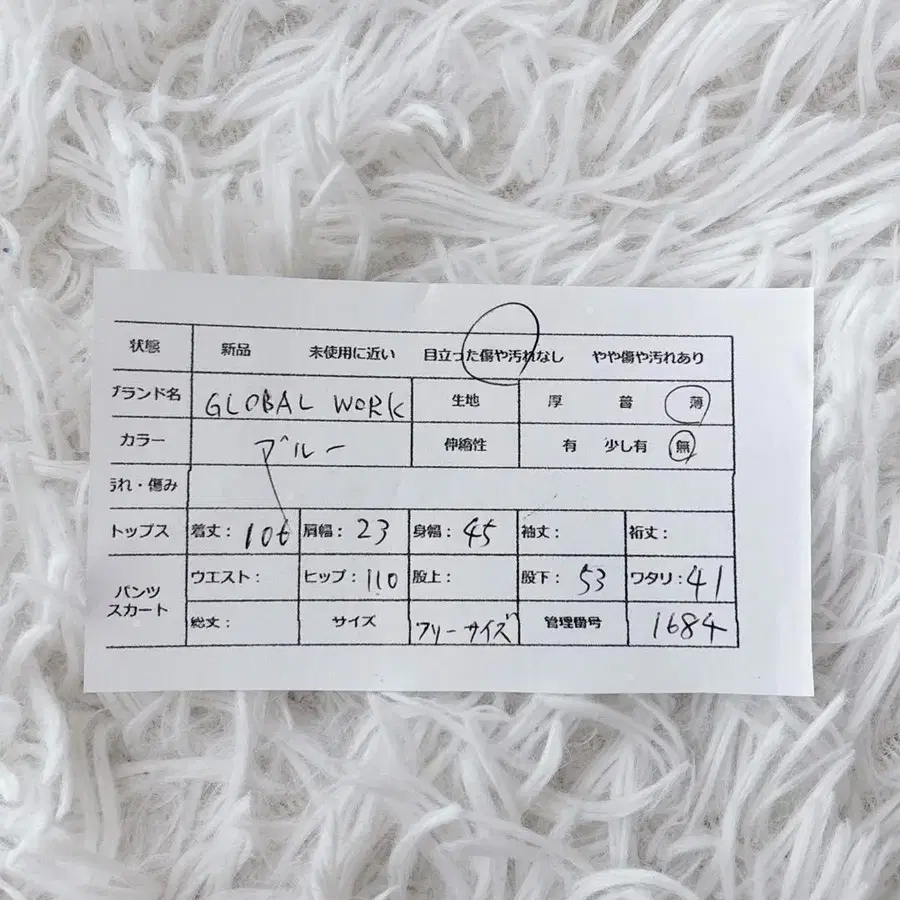 状態 新品 未使用に近い 目立った傷や汚れなし やや傷や汚れあり
ブランド名 GLOBAL WORK 生地 厚 普 薄
カラー ブルー 伸縮性 有 少し有 無
汚れ・傷み
トップス 着丈: 106 肩幅: 23 身幅: 45 袖丈: 裄丈:
パンツ スカート ウエスト: ヒップ: 110 股上: 股下: 53 ワタリ: 41
総丈: サイズ フリーサイズ 管理番号 1684